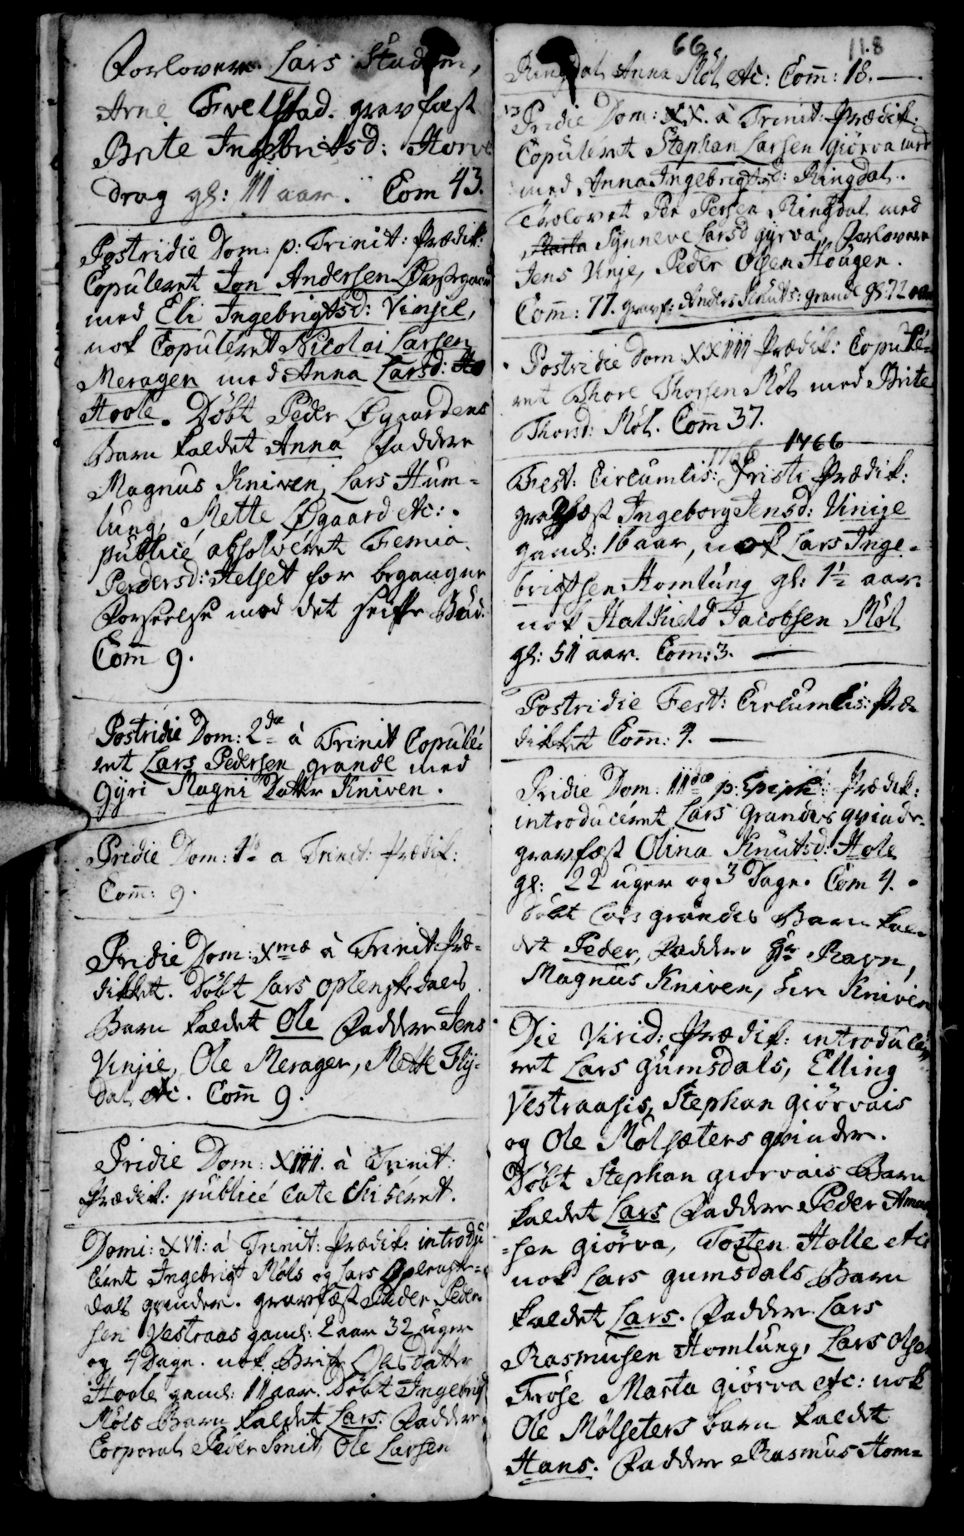 Forlovere Lars Stadem,
Arne Fvelstad. gravfæst
Brite Ingebritsd: Horve
drag gl: 11 aar. Com 43.
Postridie Dom: p: Trinit: Prædik:
Copuleret Jon Andersen Øfstegaard
med Eli Ingebrigtsd: Vinjel,
nok Copuleret Nicolai Larsen
Meragen med Anna Larsd:
Hoole. Døbt Peder Øgaardens
Barn kaldet Anna Faddere
Magnus Kniven, Lars Hum-
lung, Mette Øgaard etc:
publicé absolveret Femia
Pedersd: Helset for begangne
Forseelse mod det siette Bud.
Com 9.
Postridie Dom: 2da â Trinit Copulé-
ret Lars Pedersen grande med
Gyri Magni Datter Kniven.
Pridie Dom: a Trinit: Prædik:
Com: 9.
Pridie Dom: Xmæ â Trinit: Præ-
dikket. Døbt Lars Oplenskedals
Barn kaldet Ole Faddere Jens
Vinjie, Ole Merager, Mette Fly-
dal etc. Com 9.
Pridie Dom: XIII. â Trinit:
Prædik: publicé Catechiseret.
Domi: XVI: â Trinit: Prædik: introdu
ceret Ingebrigt Møls og Lars Oplenske-
dals qvinder. gravfæst Peder Peder-
sen Vestraas gaml: 2 aar 32 uger
og 4 Dage. nok Brite Olesdatter
Hoole gaml: 11 aar. Døbt Ingebrigt
Møls Barn kaldet Lars. Faddere
Corporal Peder Smit, Ole Larsen
66 118
Ringdal, Anna Møl etc: Com: 18.
Pridie Dom: XX. â Trinit: Prædik:
Copuleret Stephan Larsen Giørva
med Anna Ingebrigtsd: Ringdal.
Trolovet Peder Persen Ringdal med
Marta Synneve Larsd Gyrva, Forlovere
Jens Vinje, Peder Olsen Hougen.
Com: 77. gravf: Anders Knuts: grande gl: 72 aar
Postridie Dom XXIII Prædik: Copulé-
ret Thore Thorsen Møl med Brite
Thorsd: Møl. Com 37.
1766 1766
Fest: Circumcis: Christi Prædik:
gravfæst Ingeborg Jensd: Vinije
gaml: 16 aar, nok Lars Inge-
brigtsen Homlung gl: 1½ aar
nok Halkield Jacobsen Møl
gl: 51 aar. Com: 3.
Postridie Fest: Circumcis: Præ-
dikket Com: 9.
Pridie Dom: IIdæ p: Epiph: Prædik:
introduceret Lars Grandes qvinde
gravfæst Olina Knutsd: Hole
gl: 22 uger og 3 Dage. Com 4.
Døbt Lars grandes Barn kal-
det Peder, Faddere Hr Ravn,
Magnus Kniven, Iver Kniven
Die Virid: Prædik: introducé-
ret Lars gumsdals, Elling
Vestraasis, Stephan Giørvais
og Ole Mølsæters qvinder.
Døbt Stephan giørvais Barn
kaldet Lars Faddere Peder Amun
sen giørva, Tosten Holle etc
nok Lars gumsdals Barn
kaldet Lars. Faddere Lars
Rasmusen Homlung, Lars Olsen
Frøse Marta giørva etc: nok
Ole Mølseters barn kaldet
Hans. Faddere Rasmus Hom-